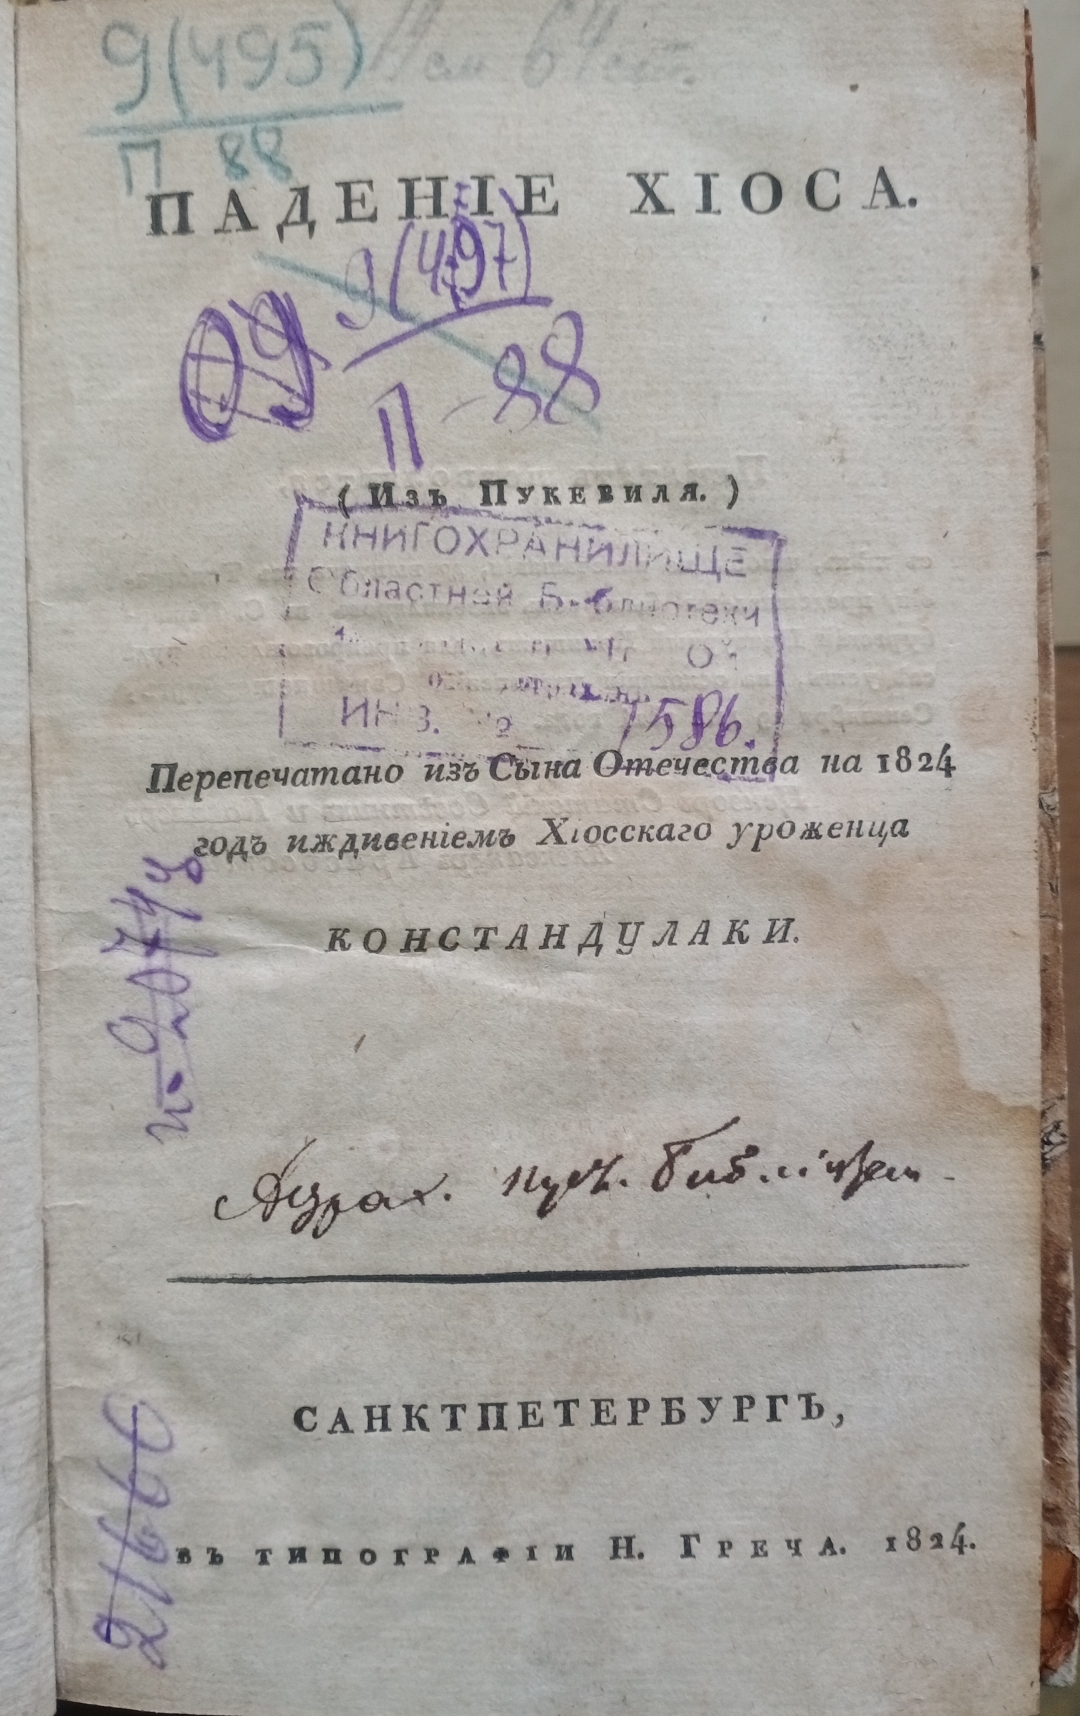 9(495)
П 88
ПАДЕНІЕ ХІОСА.
9(497)
09
П-88
(Изъ Пукевиля.)
КНИГОХРАНИЛИЩЕ
Областной Библиотеки
ИНВ. № 7586.
Перепечатано изъ Сына Отечества на 1824
годъ иждивеніемъ Хіосскаго уроженца
КОНСТАНДУЛАКИ.
Астрах.
САНКТПЕТЕРБУРГЪ,
въ типографіи Н. Греча. 1824.
21666